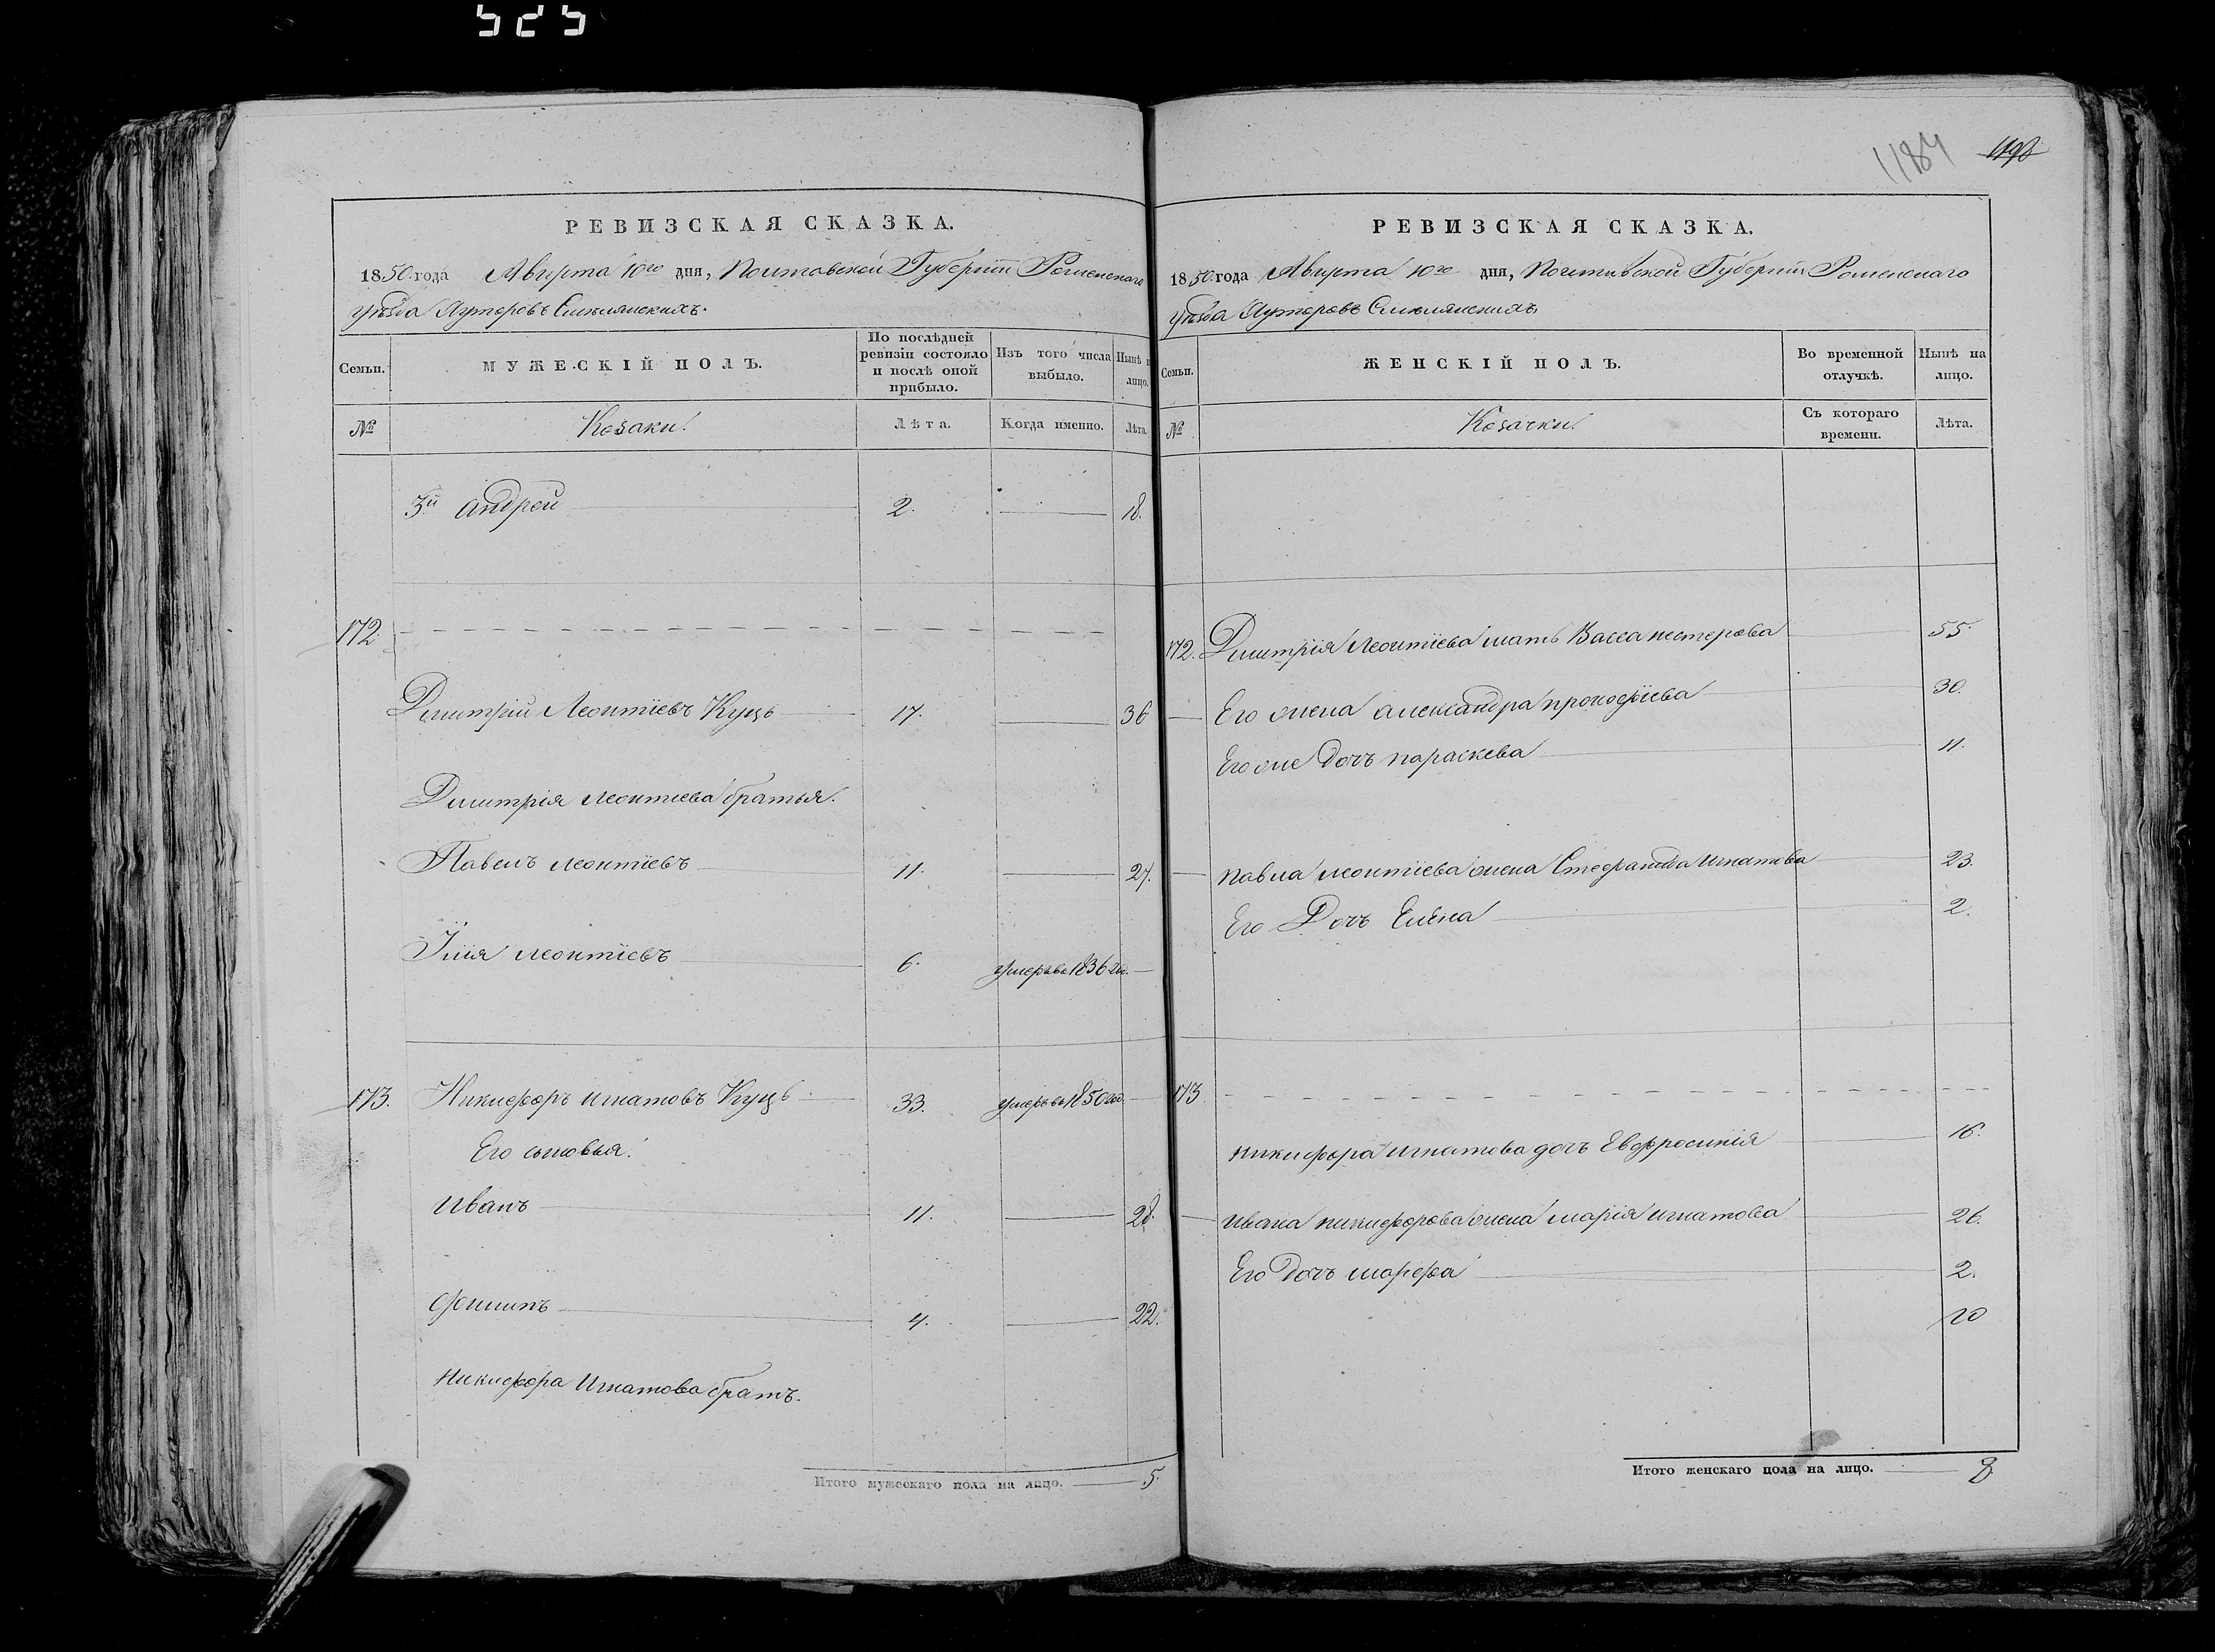 525
РЕВИЗСКАЯ СКАЗКА.
1850 года Августа 10го дня, Полтавской Губерніи Роменскаго
уѣзда Хуторовъ Смелянскихъ.
Семьи.
МУЖЕСКІЙ ПОЛЪ.
По послѣдней ревизіи состояло и послѣ оной прибыло.
Изъ того числа выбыло.
Нынѣ на лицо.
№
Козаки.
Лѣта.
Когда именно.
Лѣта.
3й Андрей 2. 18.
172.
Дмитрій Леонтіевъ Куцъ 17. 36
Дмитрія Леонтіева братья.
Павелъ Леонтіевъ 11. 27.
Илія Леонтіевъ 6. умеръ въ 1836 го.
173. Никифоръ Игнатовъ Куцъ 33. умеръ въ 1850 год.
Его сыновья.
Иванъ 11. 28.
Филипъ 4. 22.
Никифора Игнатова братъ.
Итого мужескаго пола на лицо. 5.
1184 1198
РЕВИЗСКАЯ СКАЗКА.
1850 года Августа 10го дня, Полтавской Губерніи Роменскаго
уѣзда Хуторовъ Смелянскихъ
Семьи.
ЖЕНСКІЙ ПОЛЪ.
Во временной отлучкѣ.
Нынѣ на лицо.
№
Козачки.
Съ котораго времени.
Лѣта.
172. Дмитрія Леонтіева мать Васса Нестерова 55.
Его жена Александра Прокофіева 30.
Его же дочь Параскева 11.
Павла Леонтіева жена Стефанида Игнатова 23.
Его Дочь Елена 2.
173
Никифора Игнатова дочь Евфросинія 16.
Ивана Никифорова жена Марія Игнатова 26.
Его Дочь Марфа 2.
Итого женскаго пола на лицо. 8